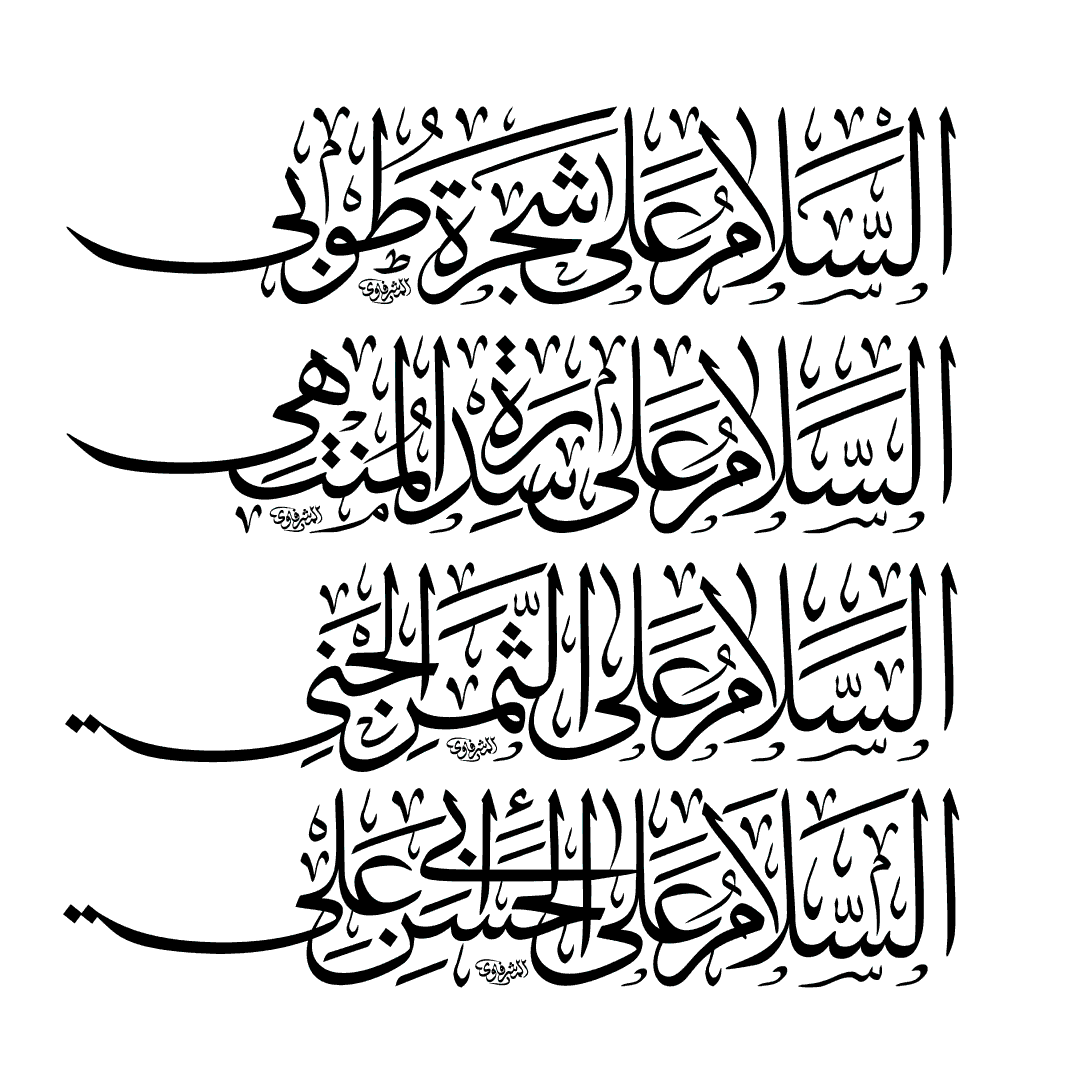 السَّلَامُ عَلَى شَجَرَةِ طُوْبَى
المشرفاوي
السَّلَامُ عَلَى سِدْرَةِ الْمُنْتَهَى
المشرفاوي
السَّلَامُ عَلَى الثَّمَرِ الْجَنِي
المشرفاوي
السَّلَامُ عَلَى أَبِي الْحَسَنِ عَلِي
المشرفاوي